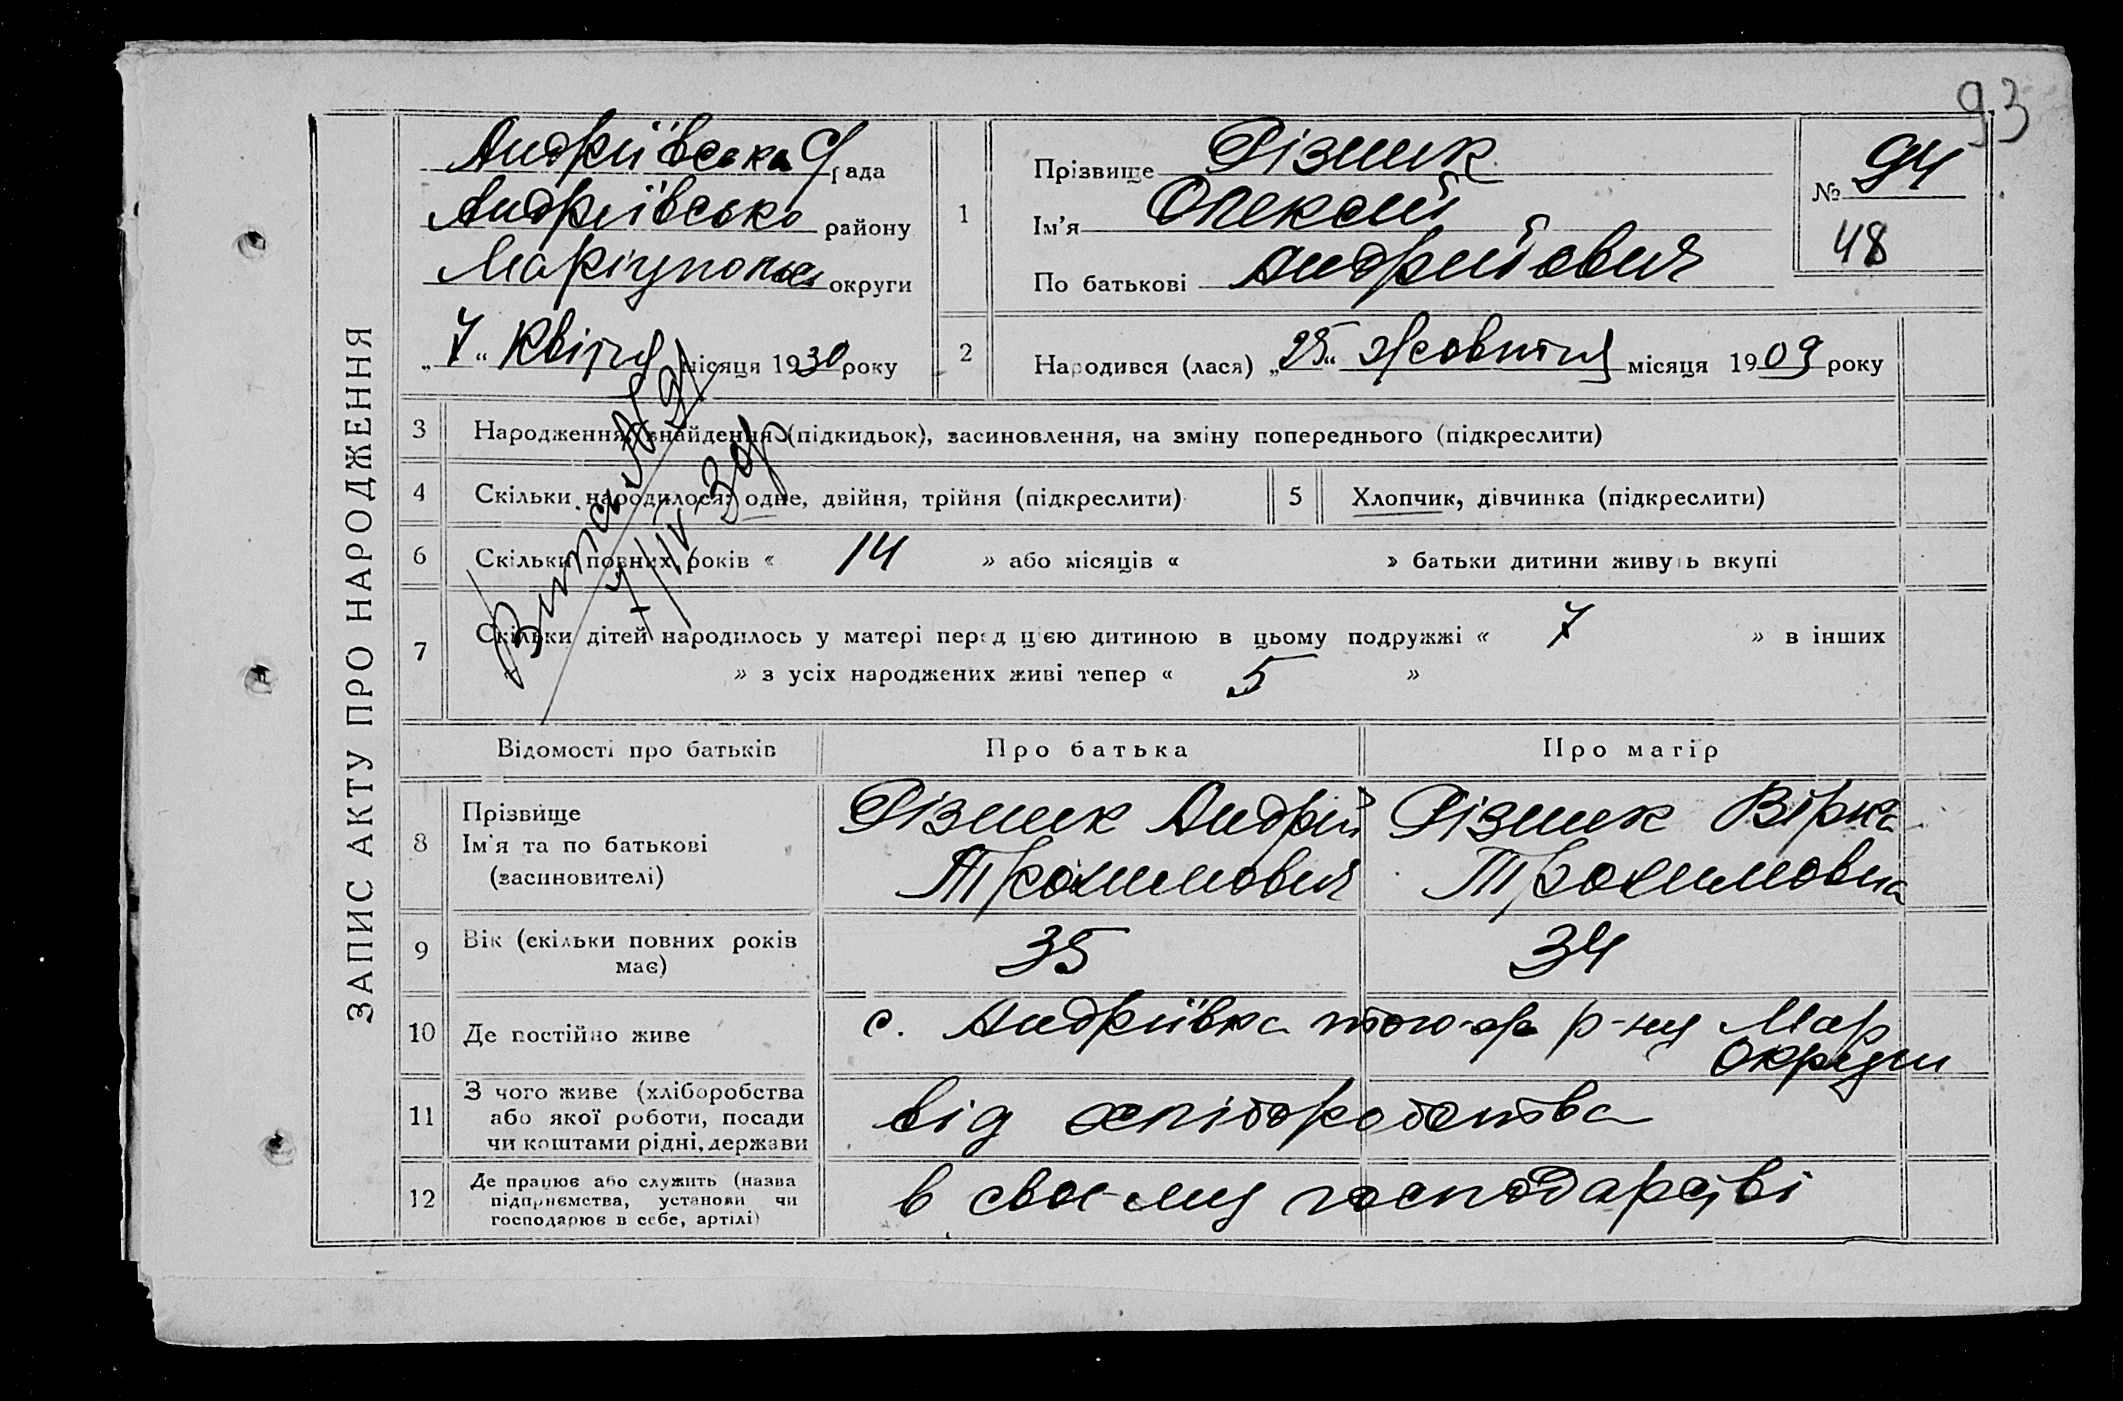 93
ЗАПИС АКТУ ПРО НАРОДЖЕННЯ
Андріївська С/рада
Андріївсько району
Маріупольс округи
„7“ Квітня місяця 1930 року
1
Прізвище Різник
Ім'я Олексій
По батькові Андрийович
№ 94
48
2
Народився (лася) „25“ Жовтня місяця 1909 року
3 Народження, знайдення (підкидьок), засиновлення, на зміну попереднього (підкреслити)
4 Скільки народилося: одне, двійня, трійня (підкреслити)
5 Хлопчик, дівчинка (підкреслити)
6 Скільки повних років « 14 » або місяців « » батьки дитини живуть вкупі
7 Скільки дітей народилось у матері перед цією дитиною в цьому подружжі « 7 » в інших
» з усіх народжених живі тепер « 5 »
7/IV 30р
Відомості про батьків Про батька Про матір
8 Прізвище
Ім'я та по батькові
(засиновителі)
Різник Андрій
Трохимович
Різник Вірка
Трохимовна
9 Вік (скільки повних років
має)
35 34
10 Де постійно живе
с. Андріївка того-ж р-ну Мар
Округи
11 З чого живе (хліборобства
або якої роботи, посади
чи коштами рідні, держави
від хліборобства
12 Де працює або служить (назва
підприємства, установи чи
господарює в себе, артілі)
в своєму господарстві